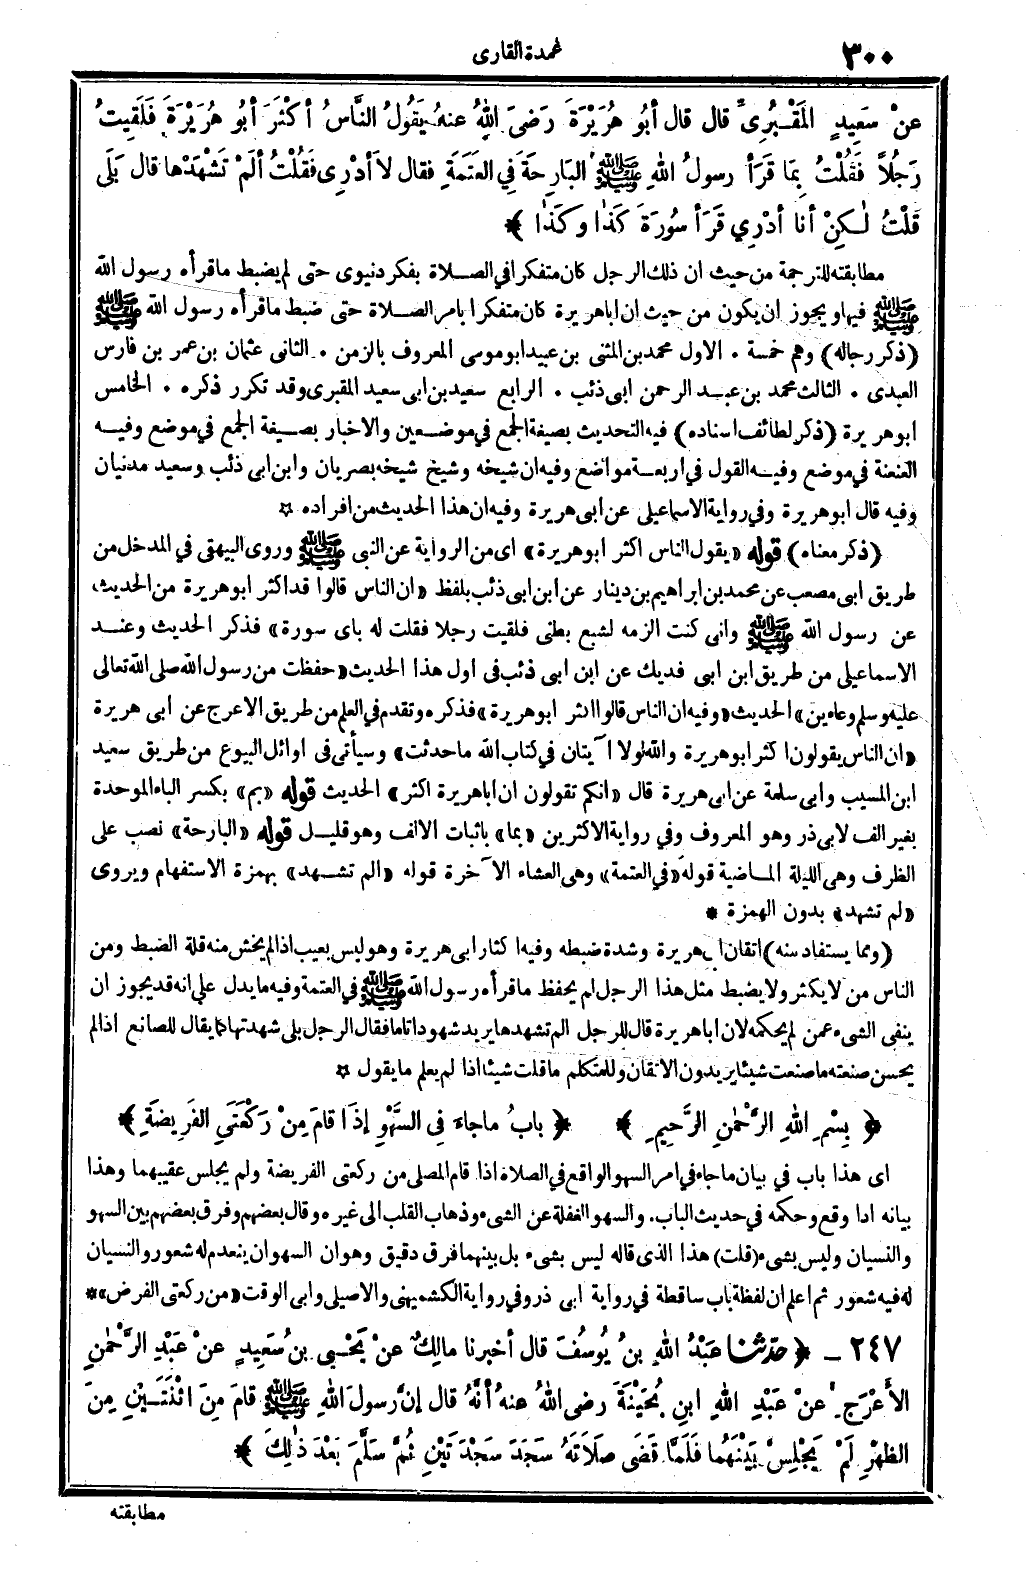 ٣٠٠
عمدة القارى
عنْ سَعِيدٍ المَقْبُرِىِّ قال قال أبُو هُرَيْرَةَ رَضىَ اللهُ عنهُ يَقُولُ النَّاسُ أكْثَرَ أبُو هُرَيْرَةَ فَلَقِيتُ
رَجُلاً فَقُلْتُ بِمَا قَرَأ رسولُ اللهِ ﷺ البَارِحَةَ فِي العَتَمَةِ فقال لاَ أدْرِى فَقُلْتُ ألَمْ تَشْهَدْها قال بَلَى
قلْتُ لَـكِنْ أنا أدْرِي قَرَأ سُورَةَ كَذَا وكَذَا ﴾
مطابقته للترجمة من حيث ان ذلك الرجل كان متفكرا فى الصلاة بفكر دنيوى حتى لم يضبط ما قرأه رسول الله
ﷺ فيها ويجوز ان يكون من حيث ان ابا هريرة كان متفكرا بامر الصلاة حتى ضبط ما قرأه رسول الله ﷺ
(ذكر رجاله) وهم خمسة • الاول محمد بن المثنى بن عبيد ابو موسى المعروف بالزمن • الثانى عثمان بن عمر بن فارس
العبدى • الثالث محمد بن عبد الرحمن ابى ذئب • الرابع سعيد بن ابى سعيد المقبرى وقد تكرر ذكره • الخامس
ابو هريرة (ذكر لطائف اسناده) فيه التحديث بصيغة الجمع في موضعين والاخبار بصيغة الجمع في موضع وفيه
العنعنة في موضع وفيه القول في اربعة مواضع وفيه ان شيخه وشيخ شيخه بصريان وابن ابى ذئب وسعيد مدنيان
وفيه قال ابو هريرة وفي رواية الاسماعيلى عن ابى هريرة وفيه ان هذا الحديث من افراده ☆
(ذكر معناه) قوله «يقول الناس اكثر ابو هريرة» اى من الرواية عن النبى ﷺ وروى البيهقى في المدخل من
طريق ابى مصعب عن محمد بن ابراهيم بن دينار عن ابن ابى ذئب بلفظ «ان الناس قالوا قد اكثر ابو هريرة من الحديث
عن رسول الله ﷺ وانى كنت الزمه لشبع بطنى فلقيت رجلا فقلت له باى سورة» فذكر الحديث وعند
الاسماعيلى من طريق ابن ابى فديك عن ابن ابى ذئب فى اول هذا الحديث «حفظت من رسول الله صلى الله تعالى
عليه وسلم وعاءين» الحديث «وفيه ان الناس قالوا اكثر ابو هريرة» فذكره وتقدم في العلم من طريق الاعرج عن ابى هريرة
«ان الناس يقولون اكثر ابو هريرة والله لولا آيتان في كتاب الله ما حدثت» وسيأتى فى اوائل البيوع من طريق سعيد
ابن المسيب وابى سلمة عن ابى هريرة قال «انكم تقولون ان ابا هريرة اكثر» الحديث قوله «بم» بكسر الباء الموحدة
بغير الف لابى ذر وهو المعروف وفي رواية الاكثرين «بما» باثبات الالف وهو قليل قوله «البارحة» نصب على
الظرف وهى الليلة الماضية قوله «فى العتمة» وهى العشاء الآخرة قوله «الم تشهد» بهمزة الاستفهام ويروى
«لم تشهد» بدون الهمزة *
(ومما يستفاد منه) اتقان ابى هريرة وشدة ضبطه وفيه اكثار ابى هريرة وهو ليس بعيب اذا لم يخش منه قلة الضبط ومن
الناس من لا يكثر ولا يضبط مثل هذا الرجل لم يحفظ ما قرأه رسول الله ﷺ في العتمة وفيه ما يدل على انه قد يجوز ان
ينفى الشىء عمن لم يحكمه لان ابا هريرة قال للرجل الم تشهدها يريد شهودا تاما فقال الرجل بلى شهدتها كما يقال للصانع اذا لم
يحسن صنعته ما صنعت شيئا يريدون الاتقان وللمتكلم ما قلت شيئا اذا لم يعلم ما يقول ☆
﴿ بِسْمِ اللهِ الرَّحْمٰنِ الرَّحِيمِ ﴾ ﴿ بابُ ماجاءَ فِى السَّهْوِ إذَا قامَ مِنْ رَكْعَتَىِ الفَرِيضَةِ ﴾
اى هذا باب في بيان ما جاء فى امر السهو الواقع في الصلاة اذا قام المصلى من ركعتى الفريضة ولم يجلس عقيبهما وهذا
بيانه اذا وقع وحكمه في حديث الباب. والسهو الغفلة عن الشىء وذهاب القلب الى غيره وقال بعضهم وفرق بعضهم بين السهو
والنسيان وليس بشىء (قلت) هذا الذى قاله ليس بشىء بل بينهما فرق دقيق وهو ان السهو ان ينعدم له شعور والنسيان
له فيه شعور ثم اعلم ان لفظة باب ساقطة في رواية ابى ذر وفي رواية الكشميهنى والاصيلى وابى الوقت «من ركعتى الفرض»*
٢٤٧ ـ ﴿ حدّثنا عَبْدُ اللهِ بنُ يُوسُفَ قال أخبرنا مالِكٌ عنْ يَحْيىَ بنِ سَعِيدٍ عنْ عَبْدِ الرَّحْمٰنِ
الأَعْرَجِ عنْ عَبْدِ اللهِ ابنِ بُحَيْنَةَ رضى اللهُ عنهُ أنَّهُ قال إنَّ رسولَ اللهِ ﷺ قامَ مِنَ اثْنَتَـيْنِ مِنَ
الظهْرِ لَمْ يَجْلِسْ بَيْنَهُما فَلَمَّا قَضَى صَلاَتَهُ سَجَدَ سَجْدَتَيْنِ ثُمَّ سَلَّمَ بَعْدَ ذٰلِكَ ﴾
مطابقته